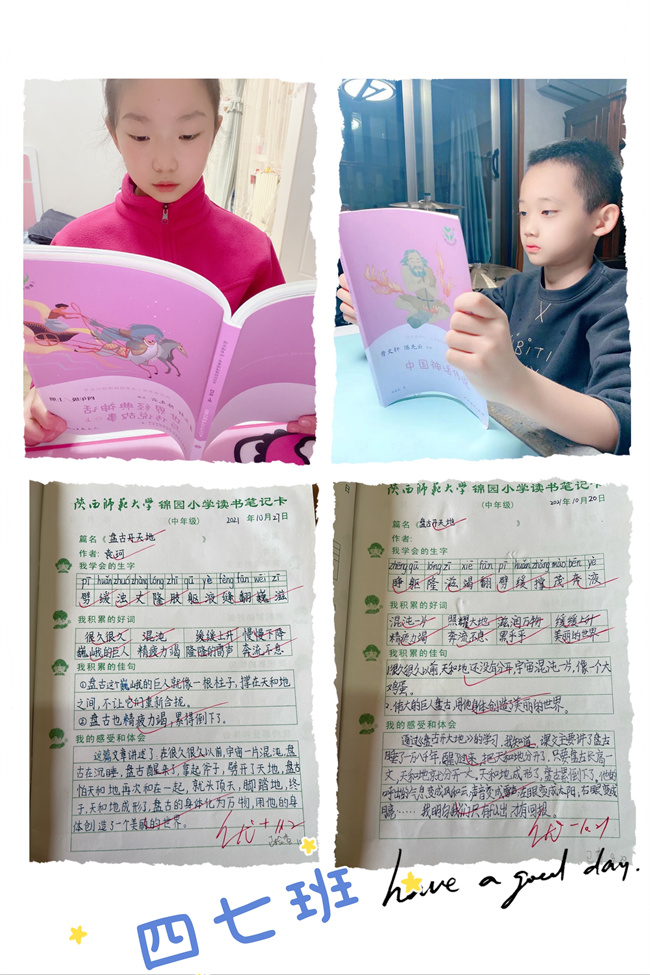 曹文轩 陈先云 主编
中国神话传说
陕西师范大学 锦园小学读书笔记卡
(中年级) 2021 年 10 月 27 日
篇名《盘古开天地》
作者:袁珂
我学会的生字
pī huǎn zhuó zhàng lóng zhī qū yè féng fān wēi zī
劈 缓 浊 丈 隆 肢 躯 液 缝 翻 巍 滋
我积累的好词
很久很久 混沌 缓缓上升 慢慢下降
巍峨的巨人 精疲力竭 隆隆的雷声 奔流不息
我积累的佳句
①盘古这个巍峨的巨人就像一根柱子,撑在天和地
之间,不让它们重新合拢。
②盘古也精疲力竭,累得倒下了。
我的感受和体会
这篇文章讲述了,在很久很久以前,宇宙一片混沌,盘
古在沉睡,盘古醒来了,拿起斧子,劈开了天地,盘古
怕天和地再次和在一起,就头顶天,脚踏地,终
于,天和地成形了,盘古的身体化为万物,用他的身
体创造了一个美丽的世界。
陕西师范大学 锦园小学读书笔记卡
(中年级) 2021 年 10 月 20 日
篇名《盘古开天地》
作者:
我学会的生字
我积累的好词
混沌一片 照耀大地 滋润万物 缓缓上升
精疲力竭 奔流不息 黑乎乎 美丽的世界
我积累的佳句
1.很久很久以前,天和地还没有分开,宇宙混沌一片,像一个大
鸡蛋。
2.伟大的巨人盘古,用他的身体创造了美丽的世界。
我的感受和体会
通过《盘古开天地》的学习,我知道,课文主要讲了盘古
睡了一万八千年,醒过来,把天和地分开了,只要盘古长高一
丈,天和地就分开一丈,天和地成形了,盘古累倒下了,他的
呼出的气息变成风和云,声音变成雷声,左眼变成太阳,右眼变成
月亮……我明白我们只有付出才有回报。
四七班
have a good day.